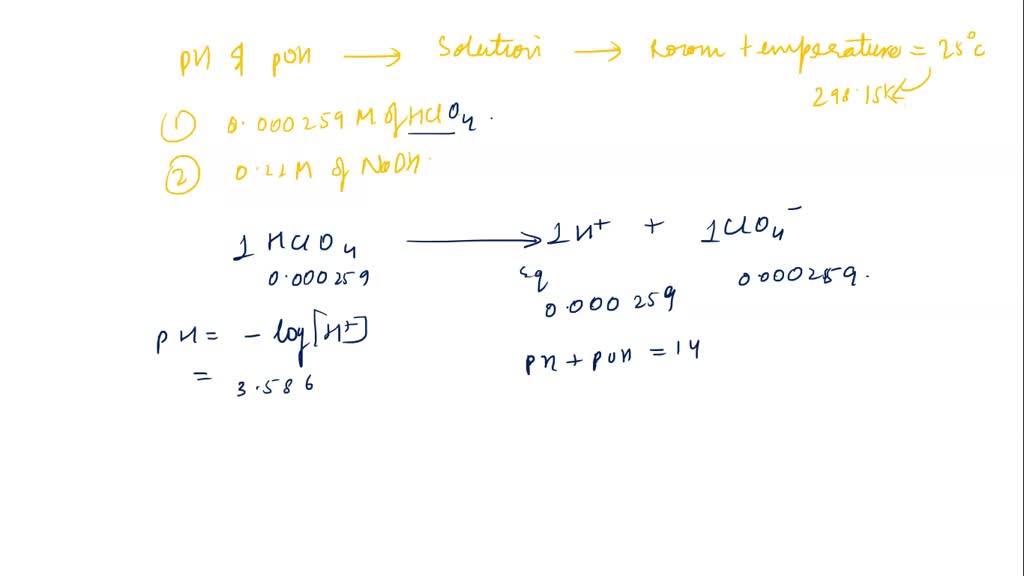 pH & pOH → Solution → Room temperature = 25°C
298.15K
① 0.000259 M of HClO4.
② 0.21M of NaOH.
1 HClO4 → 1 H+ + 1 ClO4-
0.000259 eq 0.000259 0.000259.
pH = - log[H+]
pH + pOH = 14
= 3.586